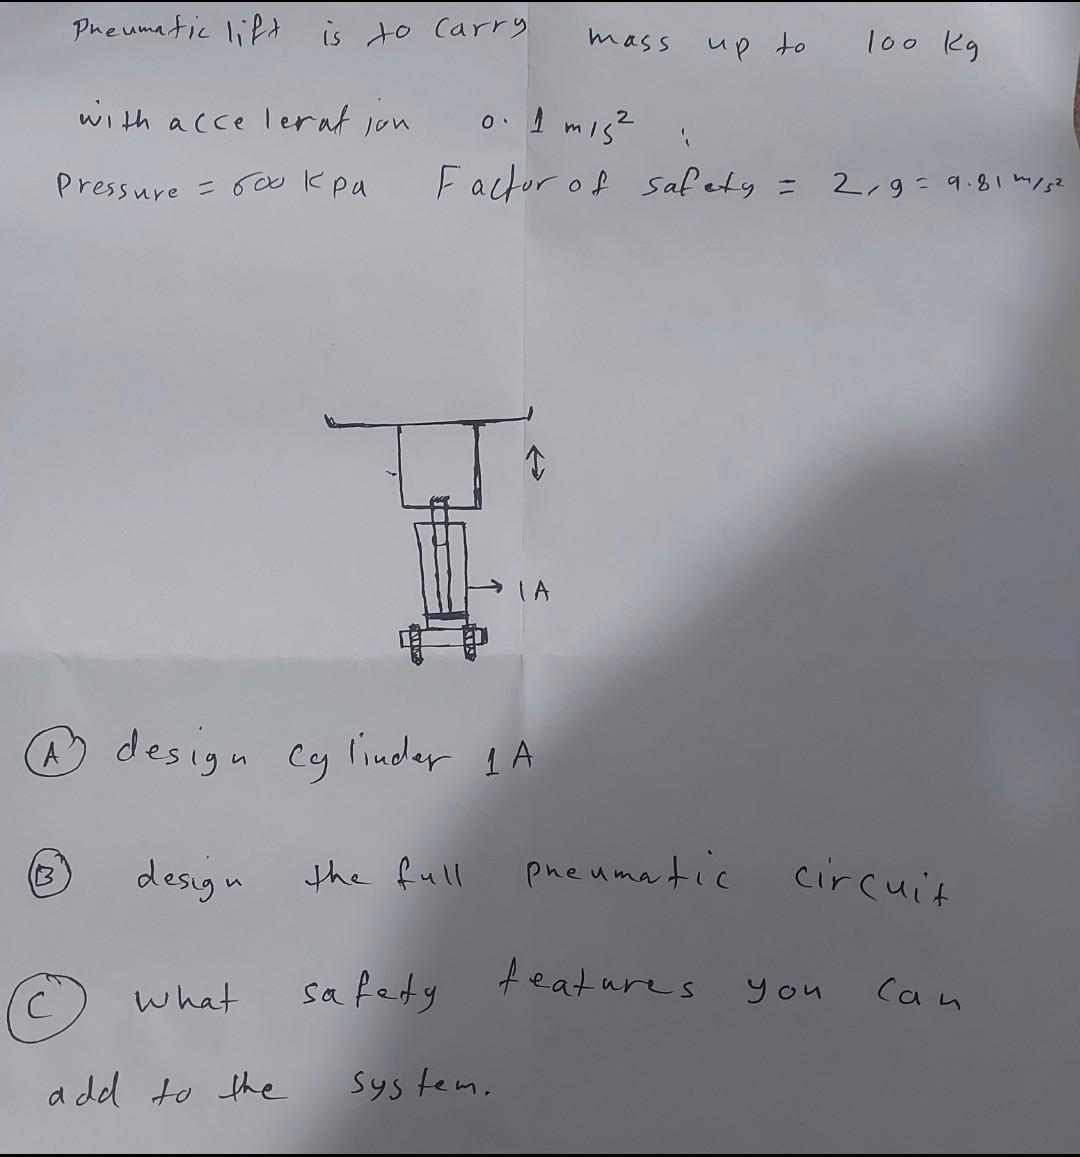 Pneumatic lift is to carry mass up to 100 kg
with acceleration 0.1 m/s² ;
Pressure = 600 kpa Factor of safety = 2, g = 9.81 m/s²
1A
(A) design cylinder 1A
(B) design the full pneumatic circuit
(C) what safety features you can
add to the system.